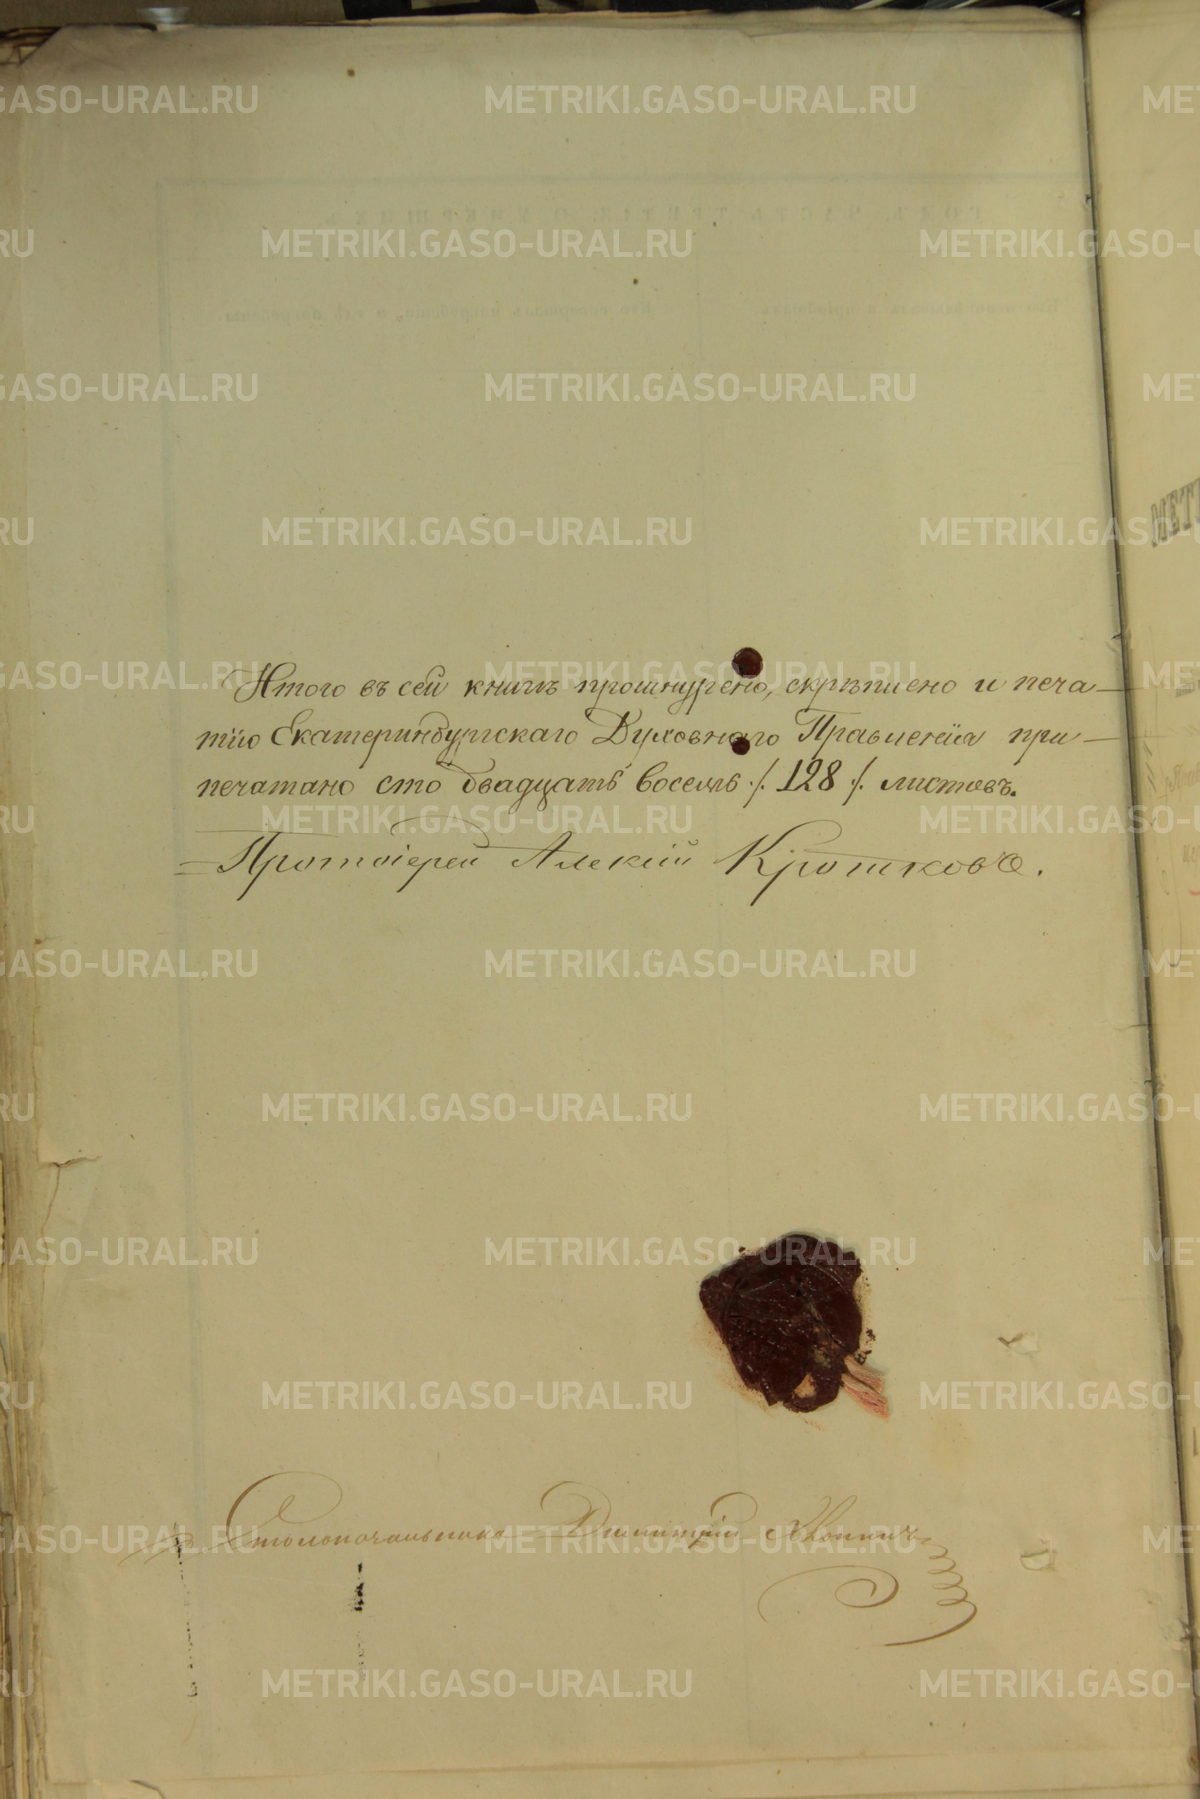 Итого въ сей книгѣ прошнурено, скрѣплено и печа-
тію Екатеринбургскаго Духовнаго Правленія при-
печатано сто двадцать восемь ./. 128 ./. листовъ.
Протоіерей Алексій Кротковъ.
Столоначальникъ Димитрій
METRIKI.GASO-URAL.RU